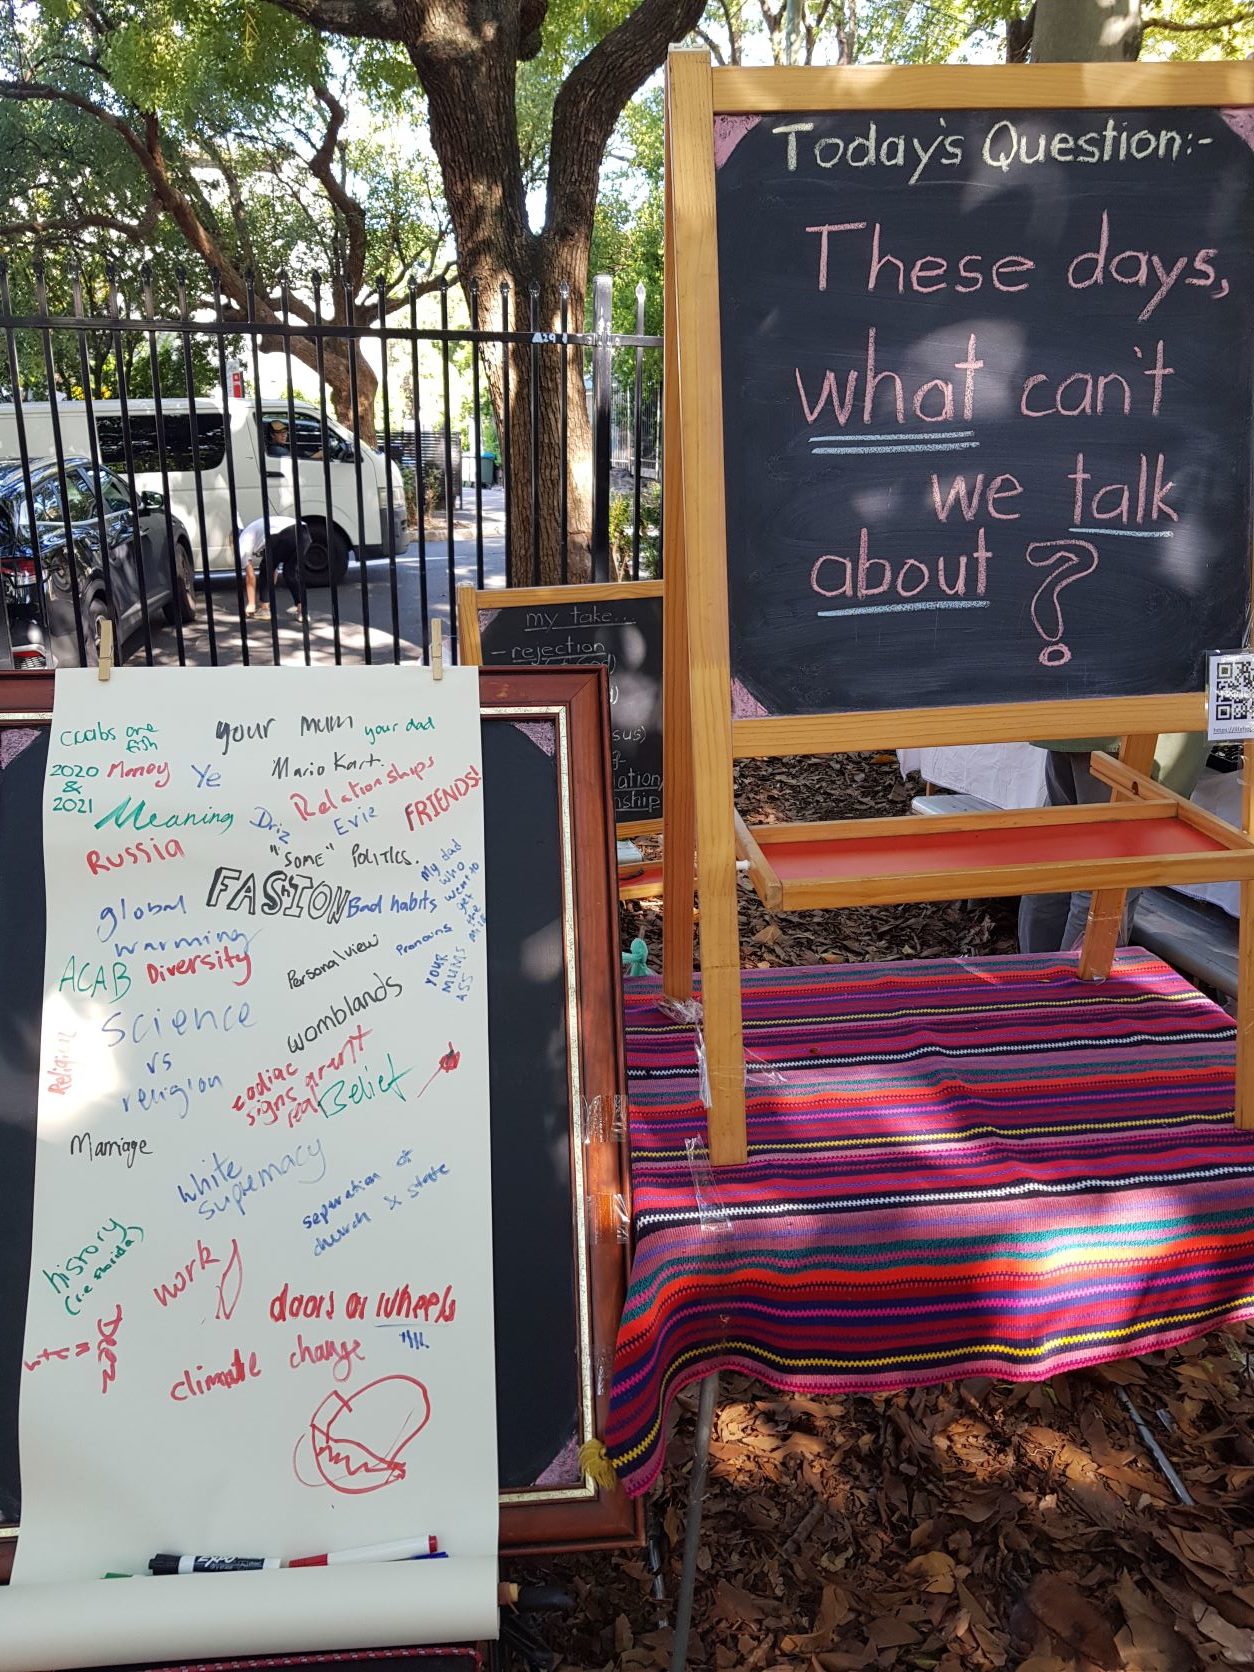 Today's Question:-
These days,
what can't
we talk
about?
my take...
- rejection
crabs are
fish
your mum
your dad
2020
&
2021
Money
Ye
Mario Kart.
Relationships
FRIENDS!
Meaning
Driz
Evie
Russia
"SOME" POLITICS.
FASHION
Bad habits
My dad
who
went to
get
the
milk
global
warming
Personal view
Pronouns
YOUR
MUMS
ASS
ACAB
Diversity
womblands
Science
vs
religion
Religion
zodiac
signs aren't
real
Belief
Marriage
white
supremacy
separation of
church & state
history
(i.e. Florida)
work
doors or wheels
climate change
EXPO